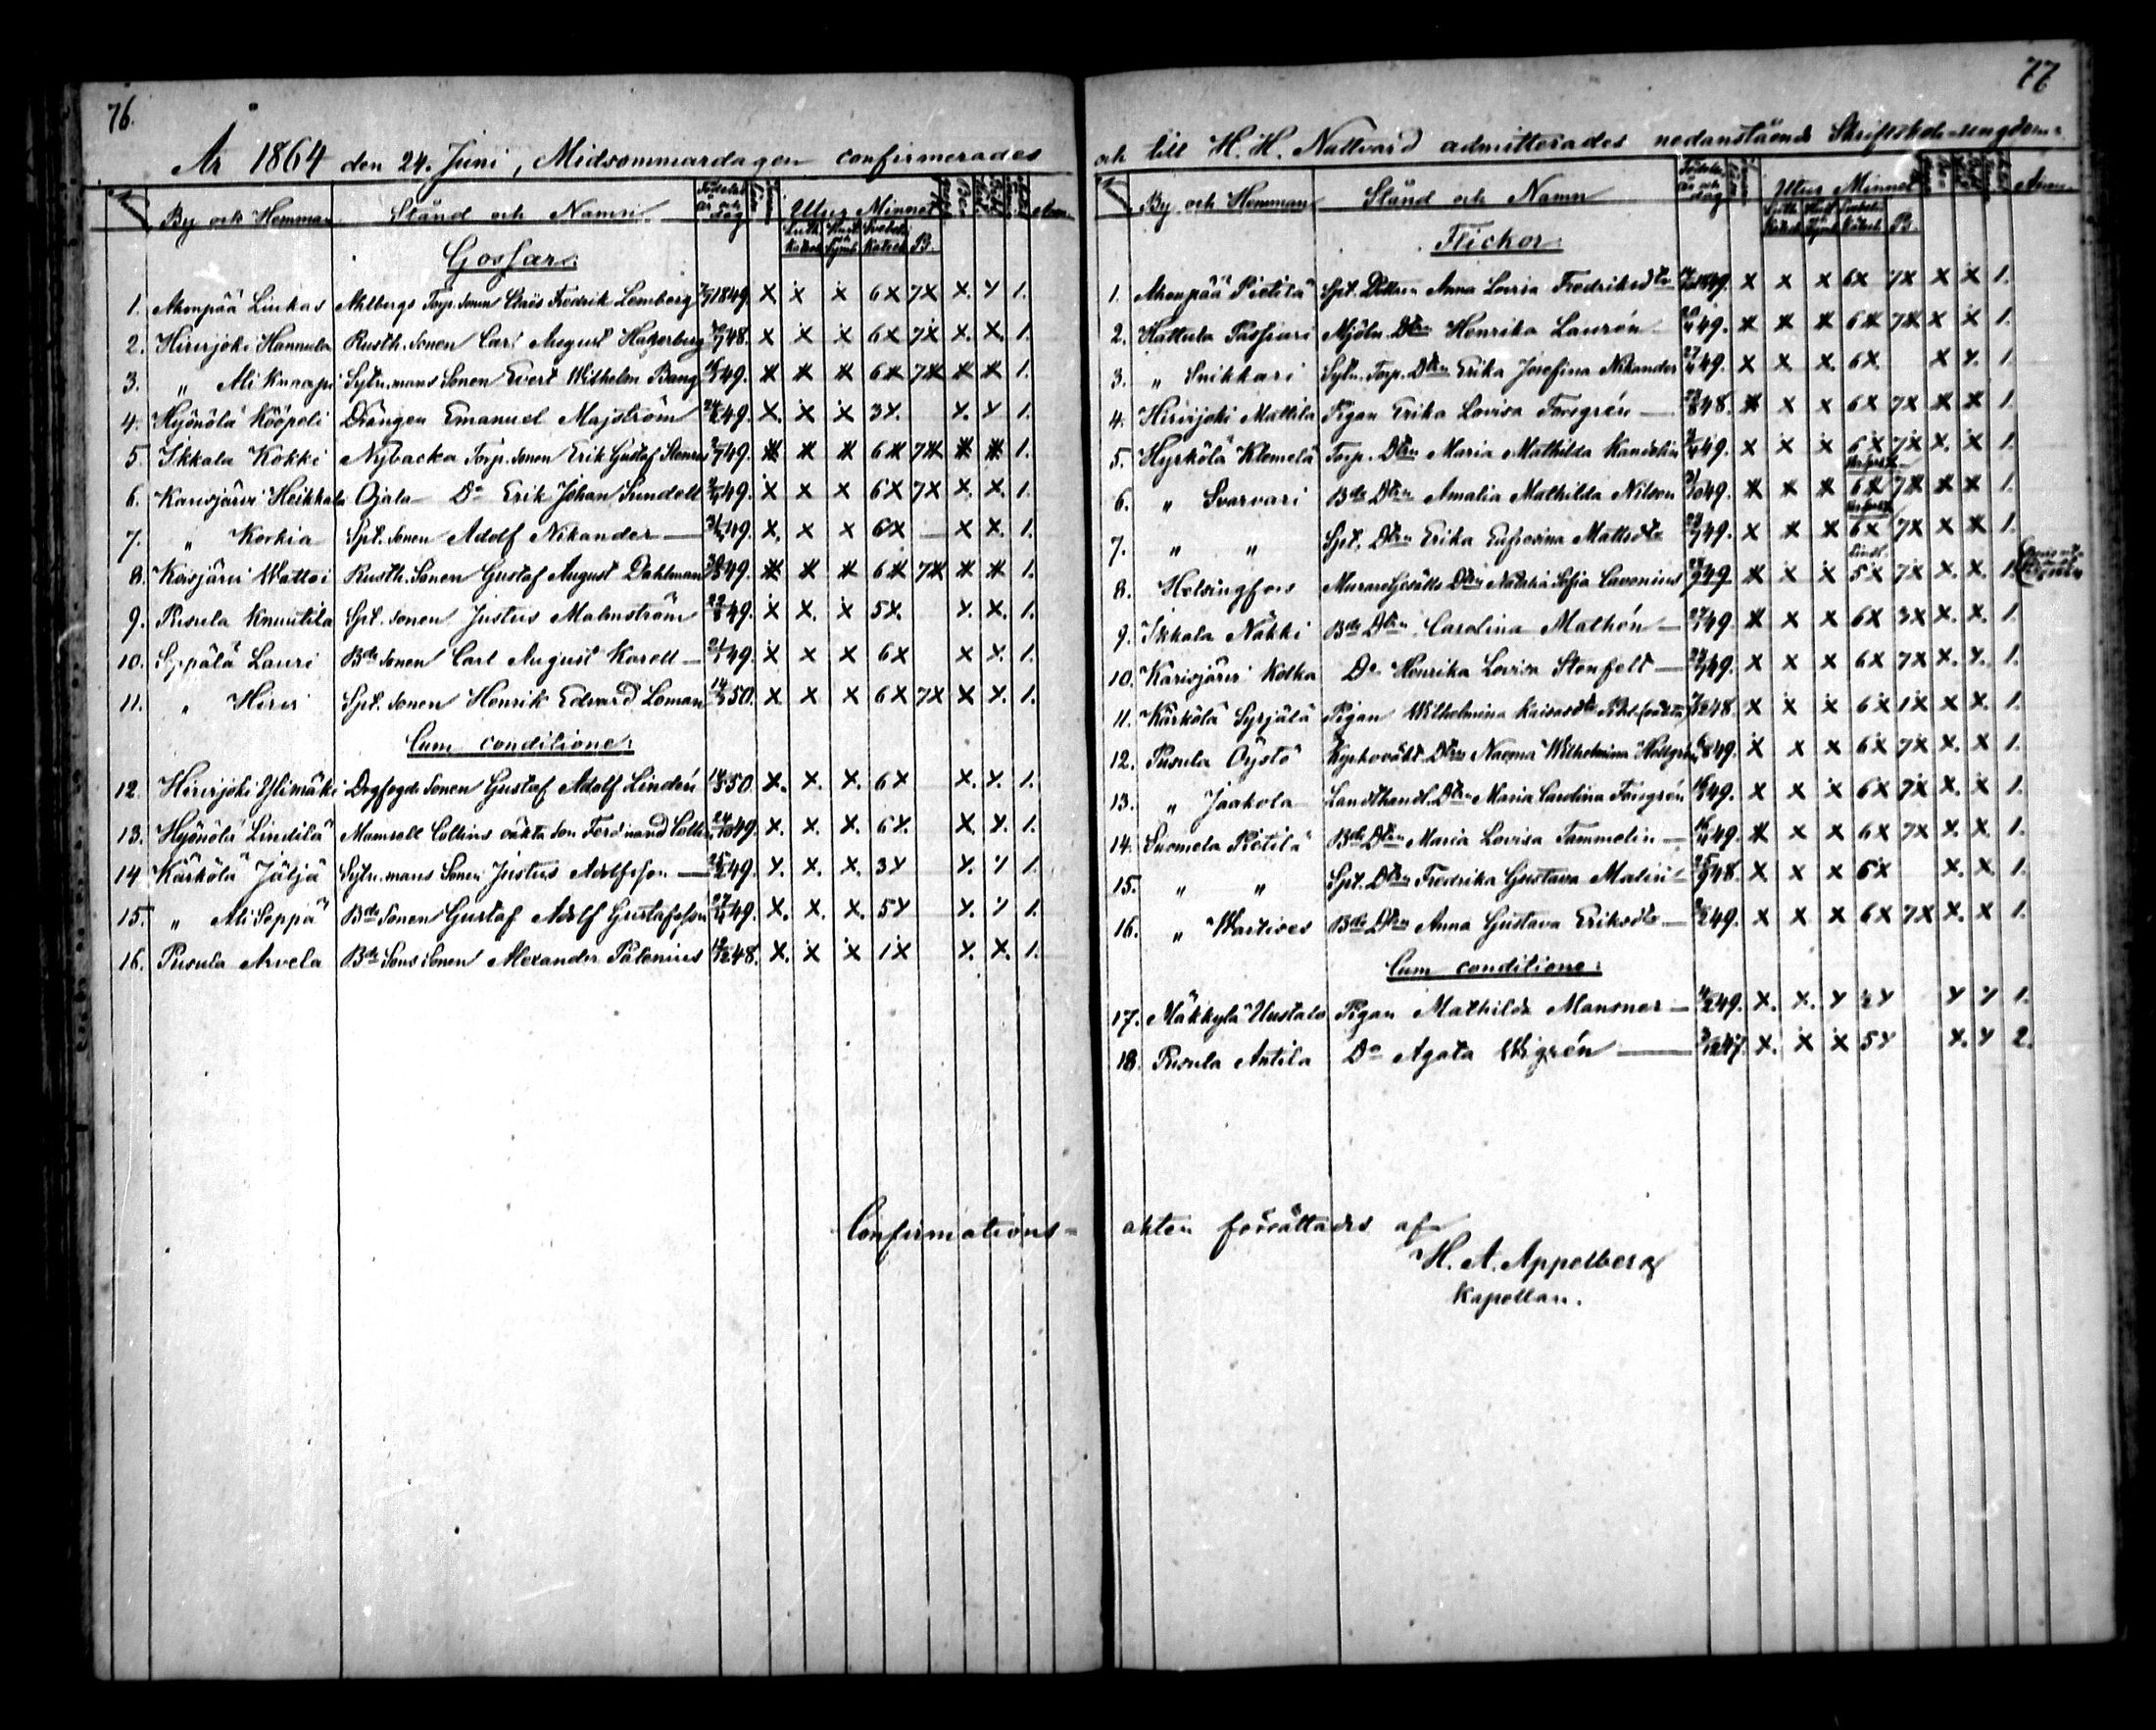 76.
År 1864 den 24. Juni, Midsommardagen confirmerades
By och Hemman Stånd och Namn Födelse år och dag Utur Minnet
Luth. Katech. Hust. Symb. Svebeli Katech. B.
Gossar:
1. Ahonpää Liukas Ahlbergs Torp. Sonen Claës Fredrik Lemberg 1849. X X X 6X 7X X. X 1.
2. Hirvijoki Hannula Rusth. Sonen Carl August Hakerberg 48. X X X 6X 7X X. X. 1.
3. " Ali Knaapi Sytn.mans Sonen Evert Wilhelm Bang 49. X X X 6X 7X X X 1.
4. Hyönölä Kööpeli Drängen Emanuel Majström 49. X. X X 3X. X. X 1.
5. Ikkala Kokki Nybacka Torp. Sonen Erik Gustaf 49. X X X 6X 7X X X 1.
6. Karisjärvi Heikkala Ojala Do Erik Johan Sundell 49. X X X 6X 7X X. X. 1.
7. " Korkia Spt. Sonen Adolf Nikander 49. X. X X 6X — X X. 1.
8. Koisjärvi Wattoi Rusth. Sonen Gustaf August Dahlman 49. X X X 6X 7X X X 1.
9. Pusula Knuutila Spt. Sonen Justus Malmström 49. X X. X 5X. X. X. 1.
10. Seppälä Lauri Bde Sonen Carl August Karell 49. X X X 6X X X. 1.
11. " Hirvi Spt. Sonen Henrik Edvard Loman 50. X X X 6X 7X X X. 1.
Cum conditione:
12. Hirvijoki Ylimäki Drgfogde Sonen Gustaf Adolf Lindén 50. X. X. X. 6X X. X. 1.
13. Hyönölä Lindilä Mamsell Collins oäkta Son Ferdinand 49. X. X. X. 6X. X. X. 1.
14 Kärkölä Jäljä Sytn.mans Sonen Justus Adolfsson 49. X. X. X. 3X X. X 1.
15. " Ali Seppä Bde Sonen Gustaf Adolf Gustafsson 49. X. X. X. 5X X. X 1.
16. Pusula Arvela Bde Sons Sonen Alexander Palenius 48. X. X X 1X X. X. 1.
Confirmations-
77
och till H. H. Nattvard admitterades nedanstående Skriftskole-ungdom:
By och Hemman Stånd och Namn Födelse år och dag Utur Minnet Anm.
Luth. Katech. Hust. Symb. Svebeli Katech. B.
Flickor:
1. Ahonpää Pietilä Spt. Dottren Anna Lovisa Fredriksdtr 1849. X X X 6X 7X X X 1.
2. Hattula Passiari Mjöln. Dtrn Henrika Laurén 49. X X X 6X 7X X X 1.
3. " Snikkari Sytn. Torp. Dtrn Erika Josefina Nikander 49. X X X. 6X. X X. 1.
4. Hirvijoki Mattila Pigan Erika Lovisa Forsgrén 48. X X X. 6X 7X X X 1.
5. Hyrkölä Klemelä Torp. Dtrn Maria Mathilda 49. X X X 6X 7X X. X 1.
6. " Svarvari Bde Dtrn Amalia Mathilda Nilson 49. X X X 6X 7X X X 1.
7. " " Spt. Dtrn Erika Eufrosina Mattsdtr 49. X X X 6X 7X X X 1.
8. Helsingfors Murare Gesälls Dtrn Natalia Sofia Cavonius 49 X X X 5X 7X X. X. 1.
9. Ikkala Näkki Bde Dtrn Carolina Mathén 49. X X X 6X 3X X. X. 1.
10. Karisjärvi Kolka Do Henrika Lovisa Stenfelt 49. X X X 6X 7X X. X. 1.
11. Kärkölä Syrjälä Pigan Wilhelmina 48. X X X 6X 1X X X. 1.
12. Pusula Öystö Kyrkovärd. Dtrn Naema Wilhelmina 49. X X X 6X 7X X. X 1.
13. " Jaakola Landthandl. Dtrn Maria Carolina Forsgrén 49. X X X 6X 7X X. X 1.
14. Suomela Pietilä Bde Dtrn Maria Lovisa Tammelin 49. X X X 6X 7X X. X. 1.
15. " " Spt. Dtrn Fredrika Gustava Malin 48. X X X 6X X. X. 1.
16. " Waitives Bde Dtrn Anna Gustava Eriksdtr 49. X X X 6X 7X X. X 1.
Cum conditione:
17. Mäkkylä Uustalo Pigan Mathilda Mansner 49. X. X. X X X 1.
18. Pusula Antila Do Agata Wigrén 47. X. X X 5X X. X 2.
akten förrättades af
H. A. Appelberg
Kapellan.